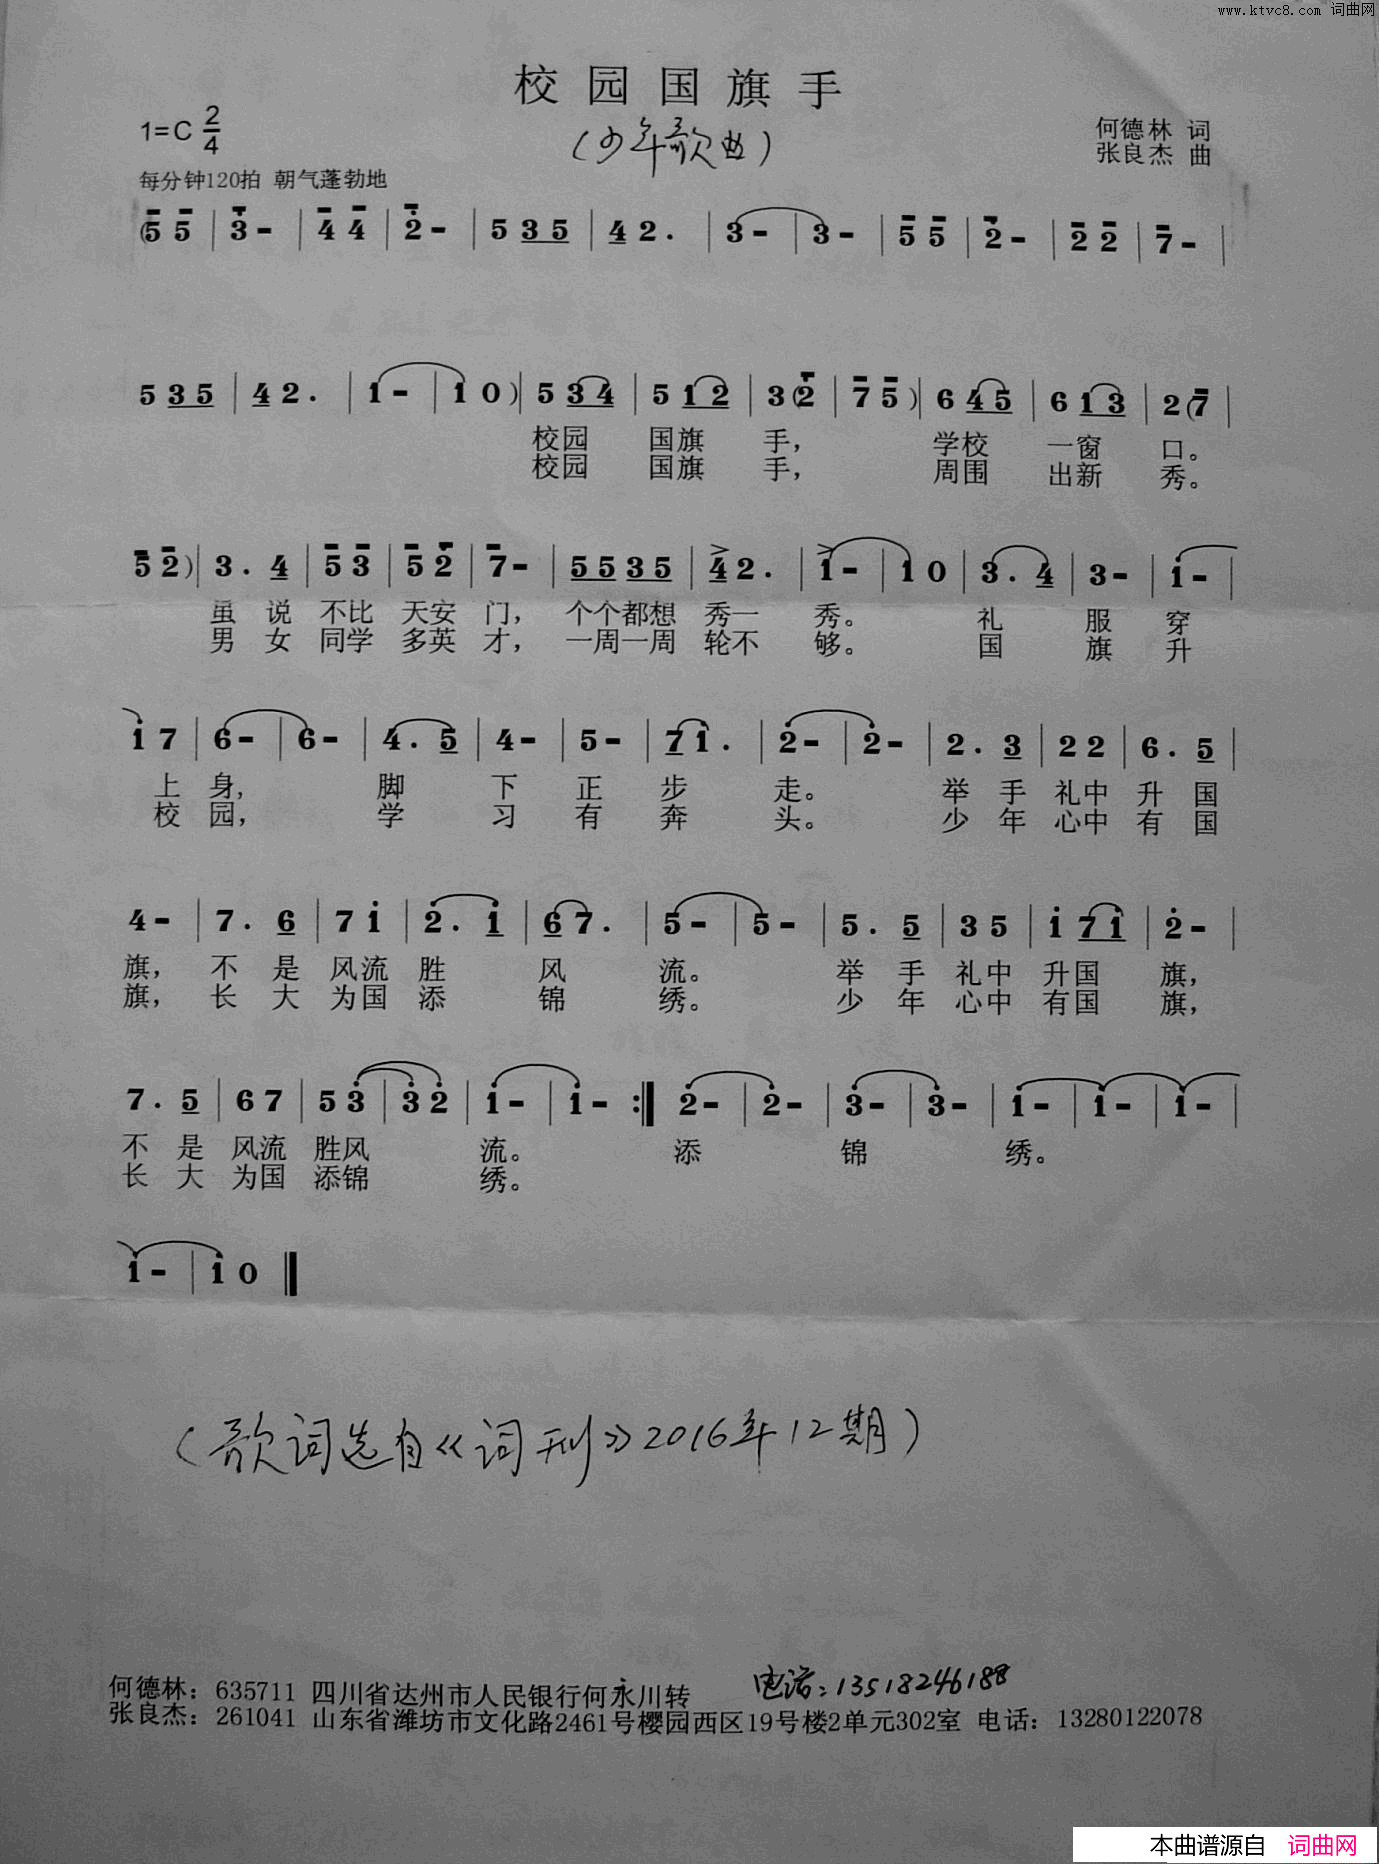 www.ktvc8.com 词曲网
校园国旗手
1=C 2/4
(少年歌曲)
何德林 词
张良杰 曲
每分钟120拍 朝气蓬勃地
(5 5 | 3 - | 4 4 | 2 - | 5 3 5 | 4 2 . | 3 - | 3 - | 5 5 | 2 - | 2 2 | 7 - |
5 3 5 | 4 2 . | 1 - | 1 0 ) | 5 3 4 | 5 1 2 | 3 (2 | 7 5 ) | 6 4 5 | 6 1 3 | 2 (7 |
校园 国旗 手, 学校 一窗 口。
校园 国旗 手, 周围 出新 秀。
5 2 ) | 3 . 4 | 5 3 | 5 2 | 7 - | 5 5 3 5 | 4 2 . | 1 - | 1 0 | 3 . 4 | 3 - | 1 - |
虽 说 不比 天安 门, 个个都想 秀一 秀。 礼 服 穿
男 女 同学 多英 才, 一周一周 轮不 够。 国 旗 升
1 7 | 6 - | 6 - | 4 . 5 | 4 - | 5 - | 7 1 . | 2 - | 2 - | 2 . 3 | 2 2 | 6 . 5 |
上 身, 脚 下 正 步 走。 举 手 礼中 升 国
校 园, 学 习 有 奔 头。 少 年 心中 有 国
4 - | 7 . 6 | 7 1 | 2 . 1 | 6 7 . | 5 - | 5 - | 5 . 5 | 3 5 | 1 7 1 | 2 - |
旗, 不 是 风流 胜 风 流。 举 手 礼中 升国 旗,
旗, 长 大 为国 添 锦 绣。 少 年 心中 有国 旗,
7 . 5 | 6 7 | 5 3 | 3 2 | 1 - | 1 - :| 2 - | 2 - | 3 - | 3 - | 1 - | 1 - | 1 - |
不 是 风流 胜风 流。 添 锦 绣。
长 大 为国 添锦 绣。
1 - | 1 0 ||
(歌词选自《词刊》2016年12期)
何德林: 635711 四川省达州市人民银行何永川转 电话: 13518246188
张良杰: 261041 山东省潍坊市文化路2461号樱园西区19号楼2单元302室 电话: 13280122078
本曲谱源自 词曲网